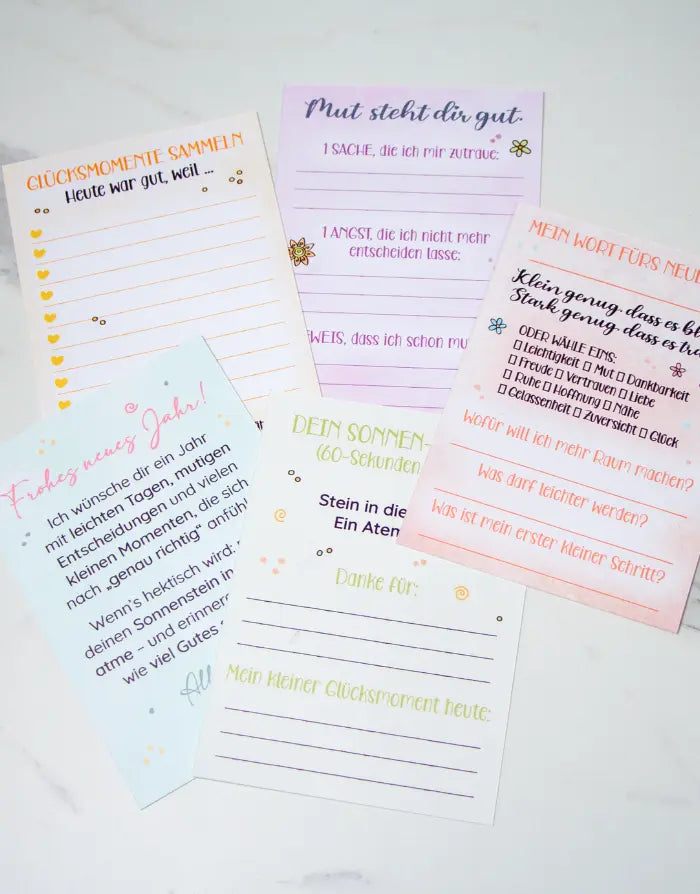 GLÜCKSMOMENTE SAMMELN
Heute war gut, weil ...
Mut steht dir gut.
1 SACHE, die ich mir zutraue:
1 ANGST, die ich nicht mehr
entscheiden lasse:
dass ich schon
MEIN WORT FÜRS
Klein genug, dass es
Stark genug, dass es
ODER WÄHLE EINS:
☐ Leichtigkeit ☐ Mut ☐ Dankbarkeit
☐ Freude ☐ Vertrauen ☐ Liebe
☐ Ruhe ☐ Hoffnung ☐ Nähe
☐ Gelassenheit ☐ Zuversicht ☐ Glück
Wofür will ich mehr Raum machen?
Was darf leichter werden?
Was ist mein erster kleiner Schritt?
Frohes neues Jahr!
Ich wünsche dir ein Jahr
mit leichten Tagen, mutigen
Entscheidungen und vielen
kleinen Momenten, die sich
nach „genau richtig“
Wenn's hektisch wird:
deinen Sonnenstein in
atme – und
wie viel Gutes
DEIN SONNEN-
(60-Sekunden
Stein in die
Ein
Danke für:
Mein kleiner Glücksmoment heute: